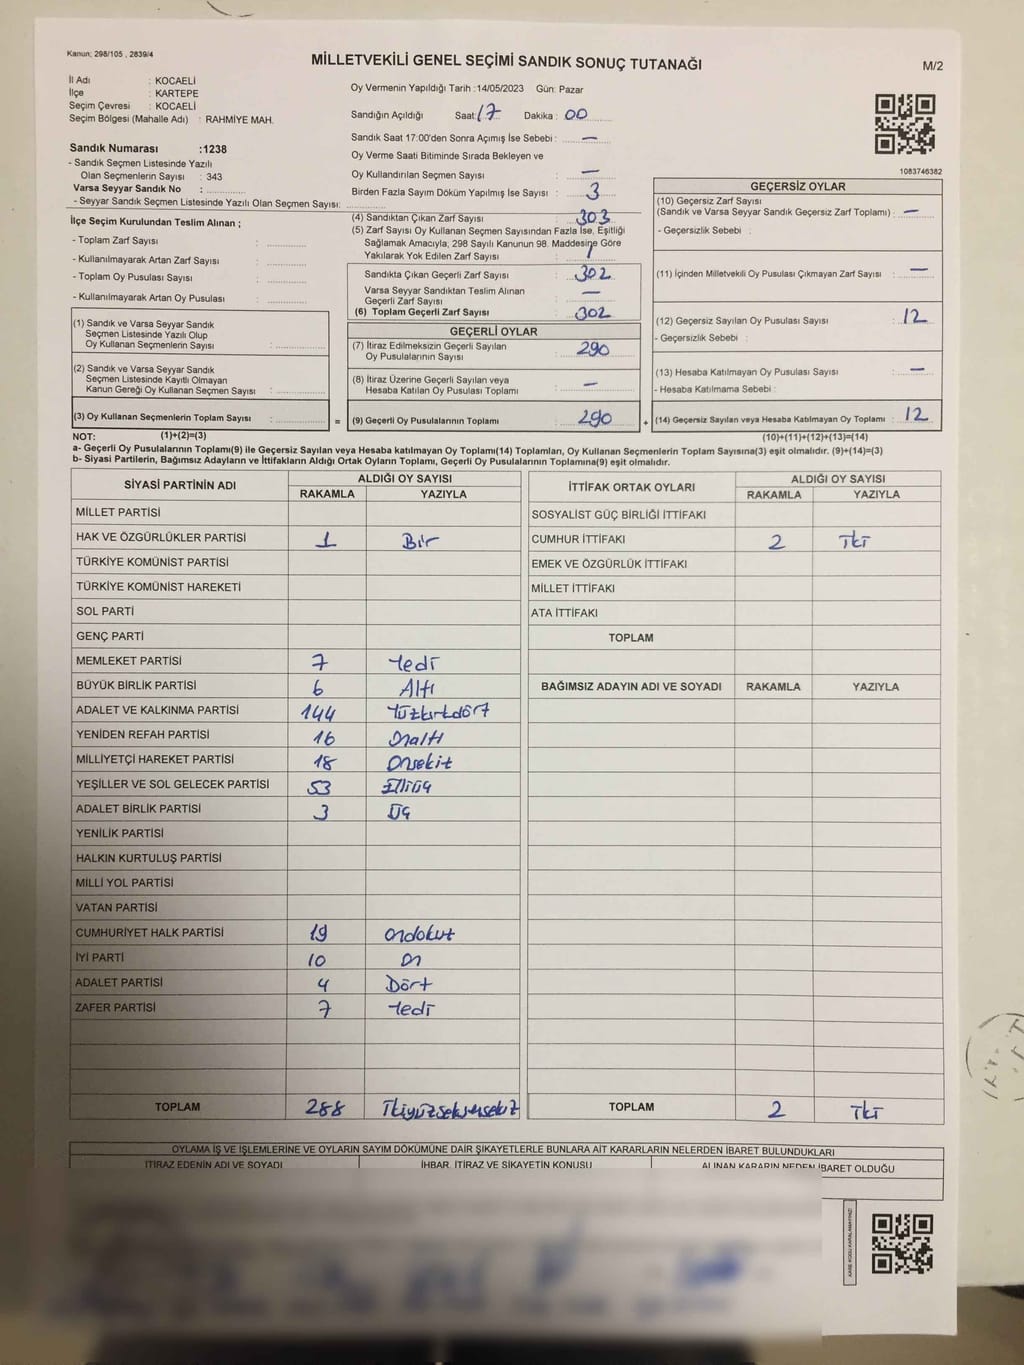 Kanun: 298/105 , 2839/4
MİLLETVEKİLİ GENEL SEÇİMİ SANDIK SONUÇ TUTANAĞI
M/2
İl Adı : KOCAELİ
İlçe : KARTEPE
Seçim Çevresi : KOCAELİ
Seçim Bölgesi (Mahalle Adı) : RAHMİYE MAH.
Sandık Numarası :1238
- Sandık Seçmen Listesinde Yazılı
Olan Seçmenlerin Sayısı : 343
Varsa Seyyar Sandık No :
- Seyyar Sandık Seçmen Listesinde Yazılı Olan Seçmen Sayısı:
Oy Vermenin Yapıldığı Tarih :14/05/2023 Gün: Pazar
Sandığın Açıldığı Saat: 17 Dakika : 00
Sandık Saat 17:00'den Sonra Açımış İse Sebebi : —
Oy Verme Saati Bitiminde Sırada Bekleyen ve
Oy Kullandırılan Seçmen Sayısı : —
Birden Fazla Sayım Döküm Yapılmış İse Sayısı : 3
1083746382
İlçe Seçim Kurulundan Teslim Alınan ;
- Toplam Zarf Sayısı :
- Kullanılmayarak Artan Zarf Sayısı :
- Toplam Oy Pusulası Sayısı :
- Kullanılmayarak Artan Oy Pusulası :
(1) Sandık ve Varsa Seyyar Sandık
Seçmen Listesinde Yazılı Olup
Oy Kullanan Seçmenlerin Sayısı :
(2) Sandık ve Varsa Seyyar Sandık
Seçmen Listesinde Kayıtlı Olmayan
Kanun Gereği Oy Kullanan Seçmen Sayısı :
(3) Oy Kullanan Seçmenlerin Toplam Sayısı : =
(4) Sandıktan Çıkan Zarf Sayısı : 303
(5) Zarf Sayısı Oy Kullanan Seçmen Sayısından Fazla İse, Eşitliği
Sağlamak Amacıyla, 298 Sayılı Kanunun 98. Maddesine Göre
Yakılarak Yok Edilen Zarf Sayısı : 1
Sandıkta Çıkan Geçerli Zarf Sayısı : 302
Varsa Seyyar Sandıktan Teslim Alınan
Geçerli Zarf Sayısı : —
(6) Toplam Geçerli Zarf Sayısı : 302
GEÇERLİ OYLAR
(7) İtiraz Edilmeksizin Geçerli Sayılan
Oy Pusulalarının Sayısı : 290
(8) İtiraz Üzerine Geçerli Sayılan veya
Hesaba Katılan Oy Pusulası Toplamı : —
(9) Geçerli Oy Pusulalarının Toplamı : 290 +
GEÇERSİZ OYLAR
(10) Geçersiz Zarf Sayısı
(Sandık ve Varsa Seyyar Sandık Geçersiz Zarf Toplamı) : —
- Geçersizlik Sebebi :
(11) İçinden Milletvekili Oy Pusulası Çıkmayan Zarf Sayısı : —
(12) Geçersiz Sayılan Oy Pusulası Sayısı : 12
- Geçersizlik Sebebi :
(13) Hesaba Katılmayan Oy Pusulası Sayısı : —
- Hesaba Katılmama Sebebi :
(14) Geçersiz Sayılan veya Hesaba Katılmayan Oy Toplamı : 12
NOT: (1)+(2)=(3) (10)+(11)+(12)+(13)=(14)
a- Geçerli Oy Pusulalarının Toplamı(9) ile Geçersiz Sayılan veya Hesaba katılmayan Oy Toplamı(14) Toplamları, Oy Kullanan Seçmenlerin Toplam Sayısına(3) eşit olmalıdır. (9)+(14)=(3)
b- Siyasi Partilerin, Bağımsız Adayların ve İttifakların Aldığı Ortak Oyların Toplamı, Geçerli Oy Pusulalarının Toplamına(9) eşit olmalıdır.
SİYASİ PARTİNİN ADI ALDIĞI OY SAYISI
RAKAMLA YAZIYLA
MİLLET PARTİSİ
HAK VE ÖZGÜRLÜKLER PARTİSİ 1 Bir
TÜRKİYE KOMÜNİST PARTİSİ
TÜRKİYE KOMÜNİST HAREKETİ
SOL PARTİ
GENÇ PARTİ
MEMLEKET PARTİSİ 7 Yedi
BÜYÜK BİRLİK PARTİSİ 6 Altı
ADALET VE KALKINMA PARTİSİ 144 Yüzkırkdört
YENİDEN REFAH PARTİSİ 16 Onaltı
MİLLİYETÇİ HAREKET PARTİSİ 18 Onsekiz
YEŞİLLER VE SOL GELECEK PARTİSİ 53 Elliüç
ADALET BİRLİK PARTİSİ 3 Üç
YENİLİK PARTİSİ
HALKIN KURTULUŞ PARTİSİ
MİLLİ YOL PARTİSİ
VATAN PARTİSİ
CUMHURİYET HALK PARTİSİ 19 Ondokuz
İYİ PARTİ 10 On
ADALET PARTİSİ 4 Dört
ZAFER PARTİSİ 7 Yedi
TOPLAM 288 İkiyüzseksensekiz
İTTİFAK ORTAK OYLARI ALDIĞI OY SAYISI
RAKAMLA YAZIYLA
SOSYALİST GÜÇ BİRLİĞİ İTTİFAKI
CUMHUR İTTİFAKI 2 İki
EMEK VE ÖZGÜRLÜK İTTİFAKI
MİLLET İTTİFAKI
ATA İTTİFAKI
TOPLAM
BAĞIMSIZ ADAYIN ADI VE SOYADI RAKAMLA YAZIYLA
TOPLAM 2 İki
OYLAMA İŞ VE İŞLEMLERİNE VE OYLARIN SAYIM DÖKÜMÜNE DAİR ŞİKAYETLERLE BUNLARA AİT KARARLARIN NELERDEN İBARET BULUNDUKLARI
İTİRAZ EDENİN ADI VE SOYADI İHBAR, İTİRAZ VE ŞİKAYETİN KONUSU ALINAN KARARIN NEDEN İBARET OLDUĞU
KARE KODU KARALAMAYINIZ!